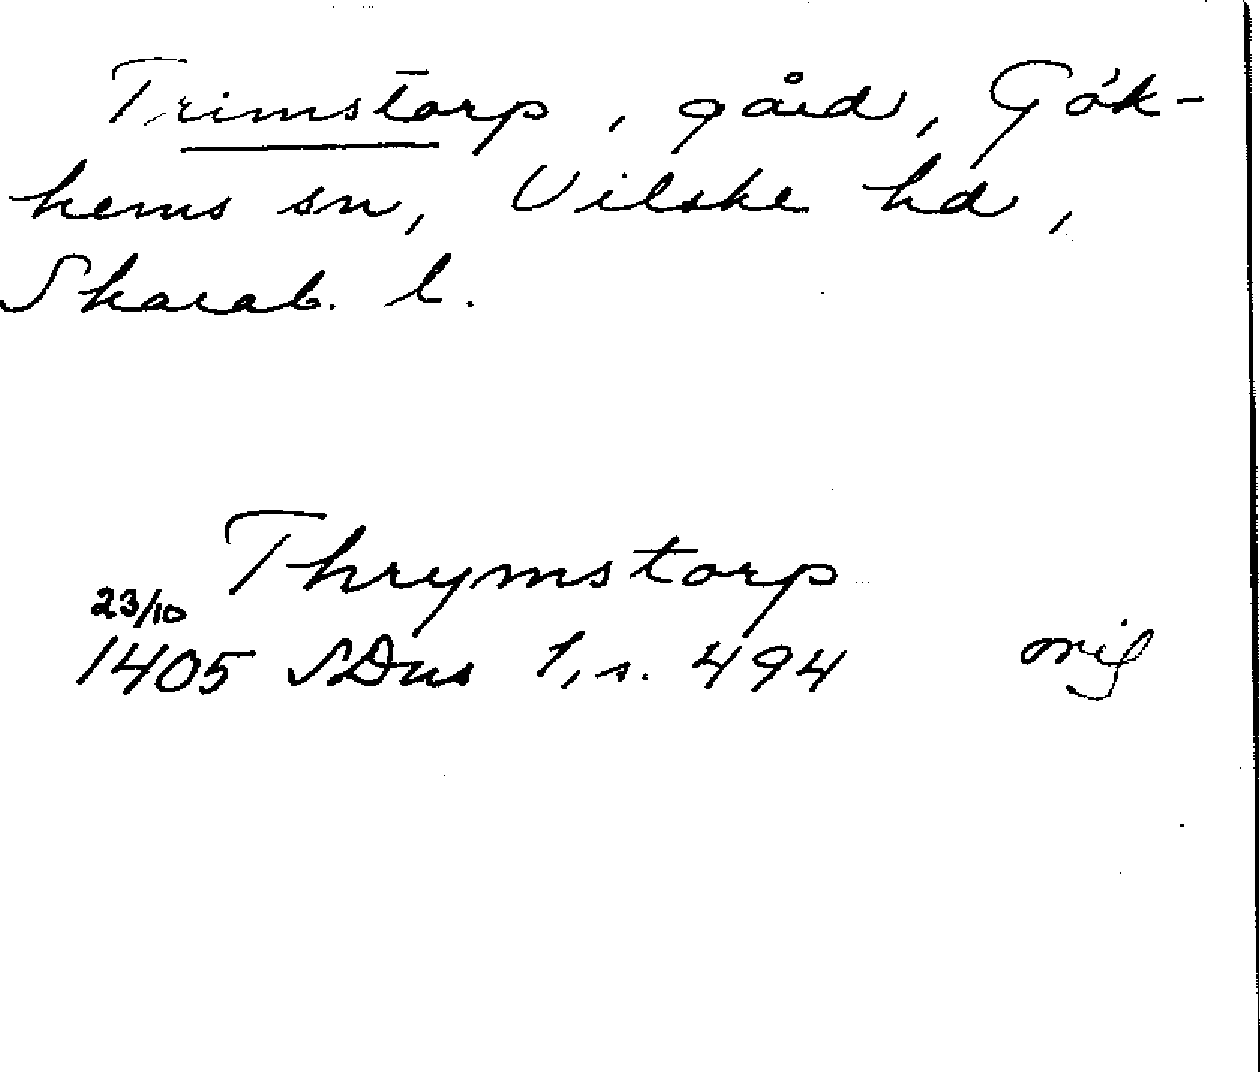 Trimstorp, gård, Gök-
hems sn, Vilske hd,
Skarab. l.
Thrymstorp
23/10
1405 SDns 1, s. 494 orig